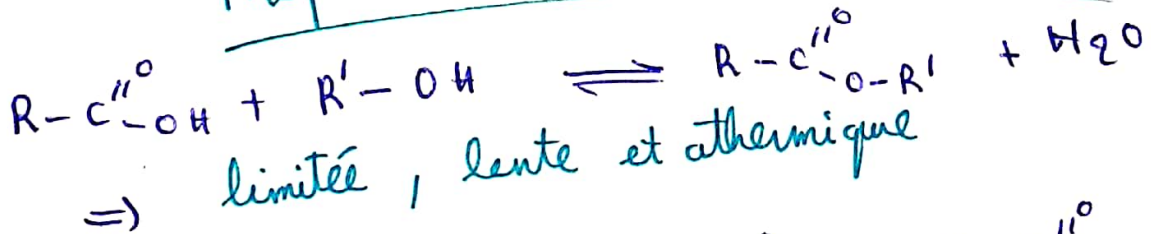 R-C(=O)-OH + R'-OH ⇌ R-C(=O)-O-R' + H2O
=> limitée, lente et athermique
=O